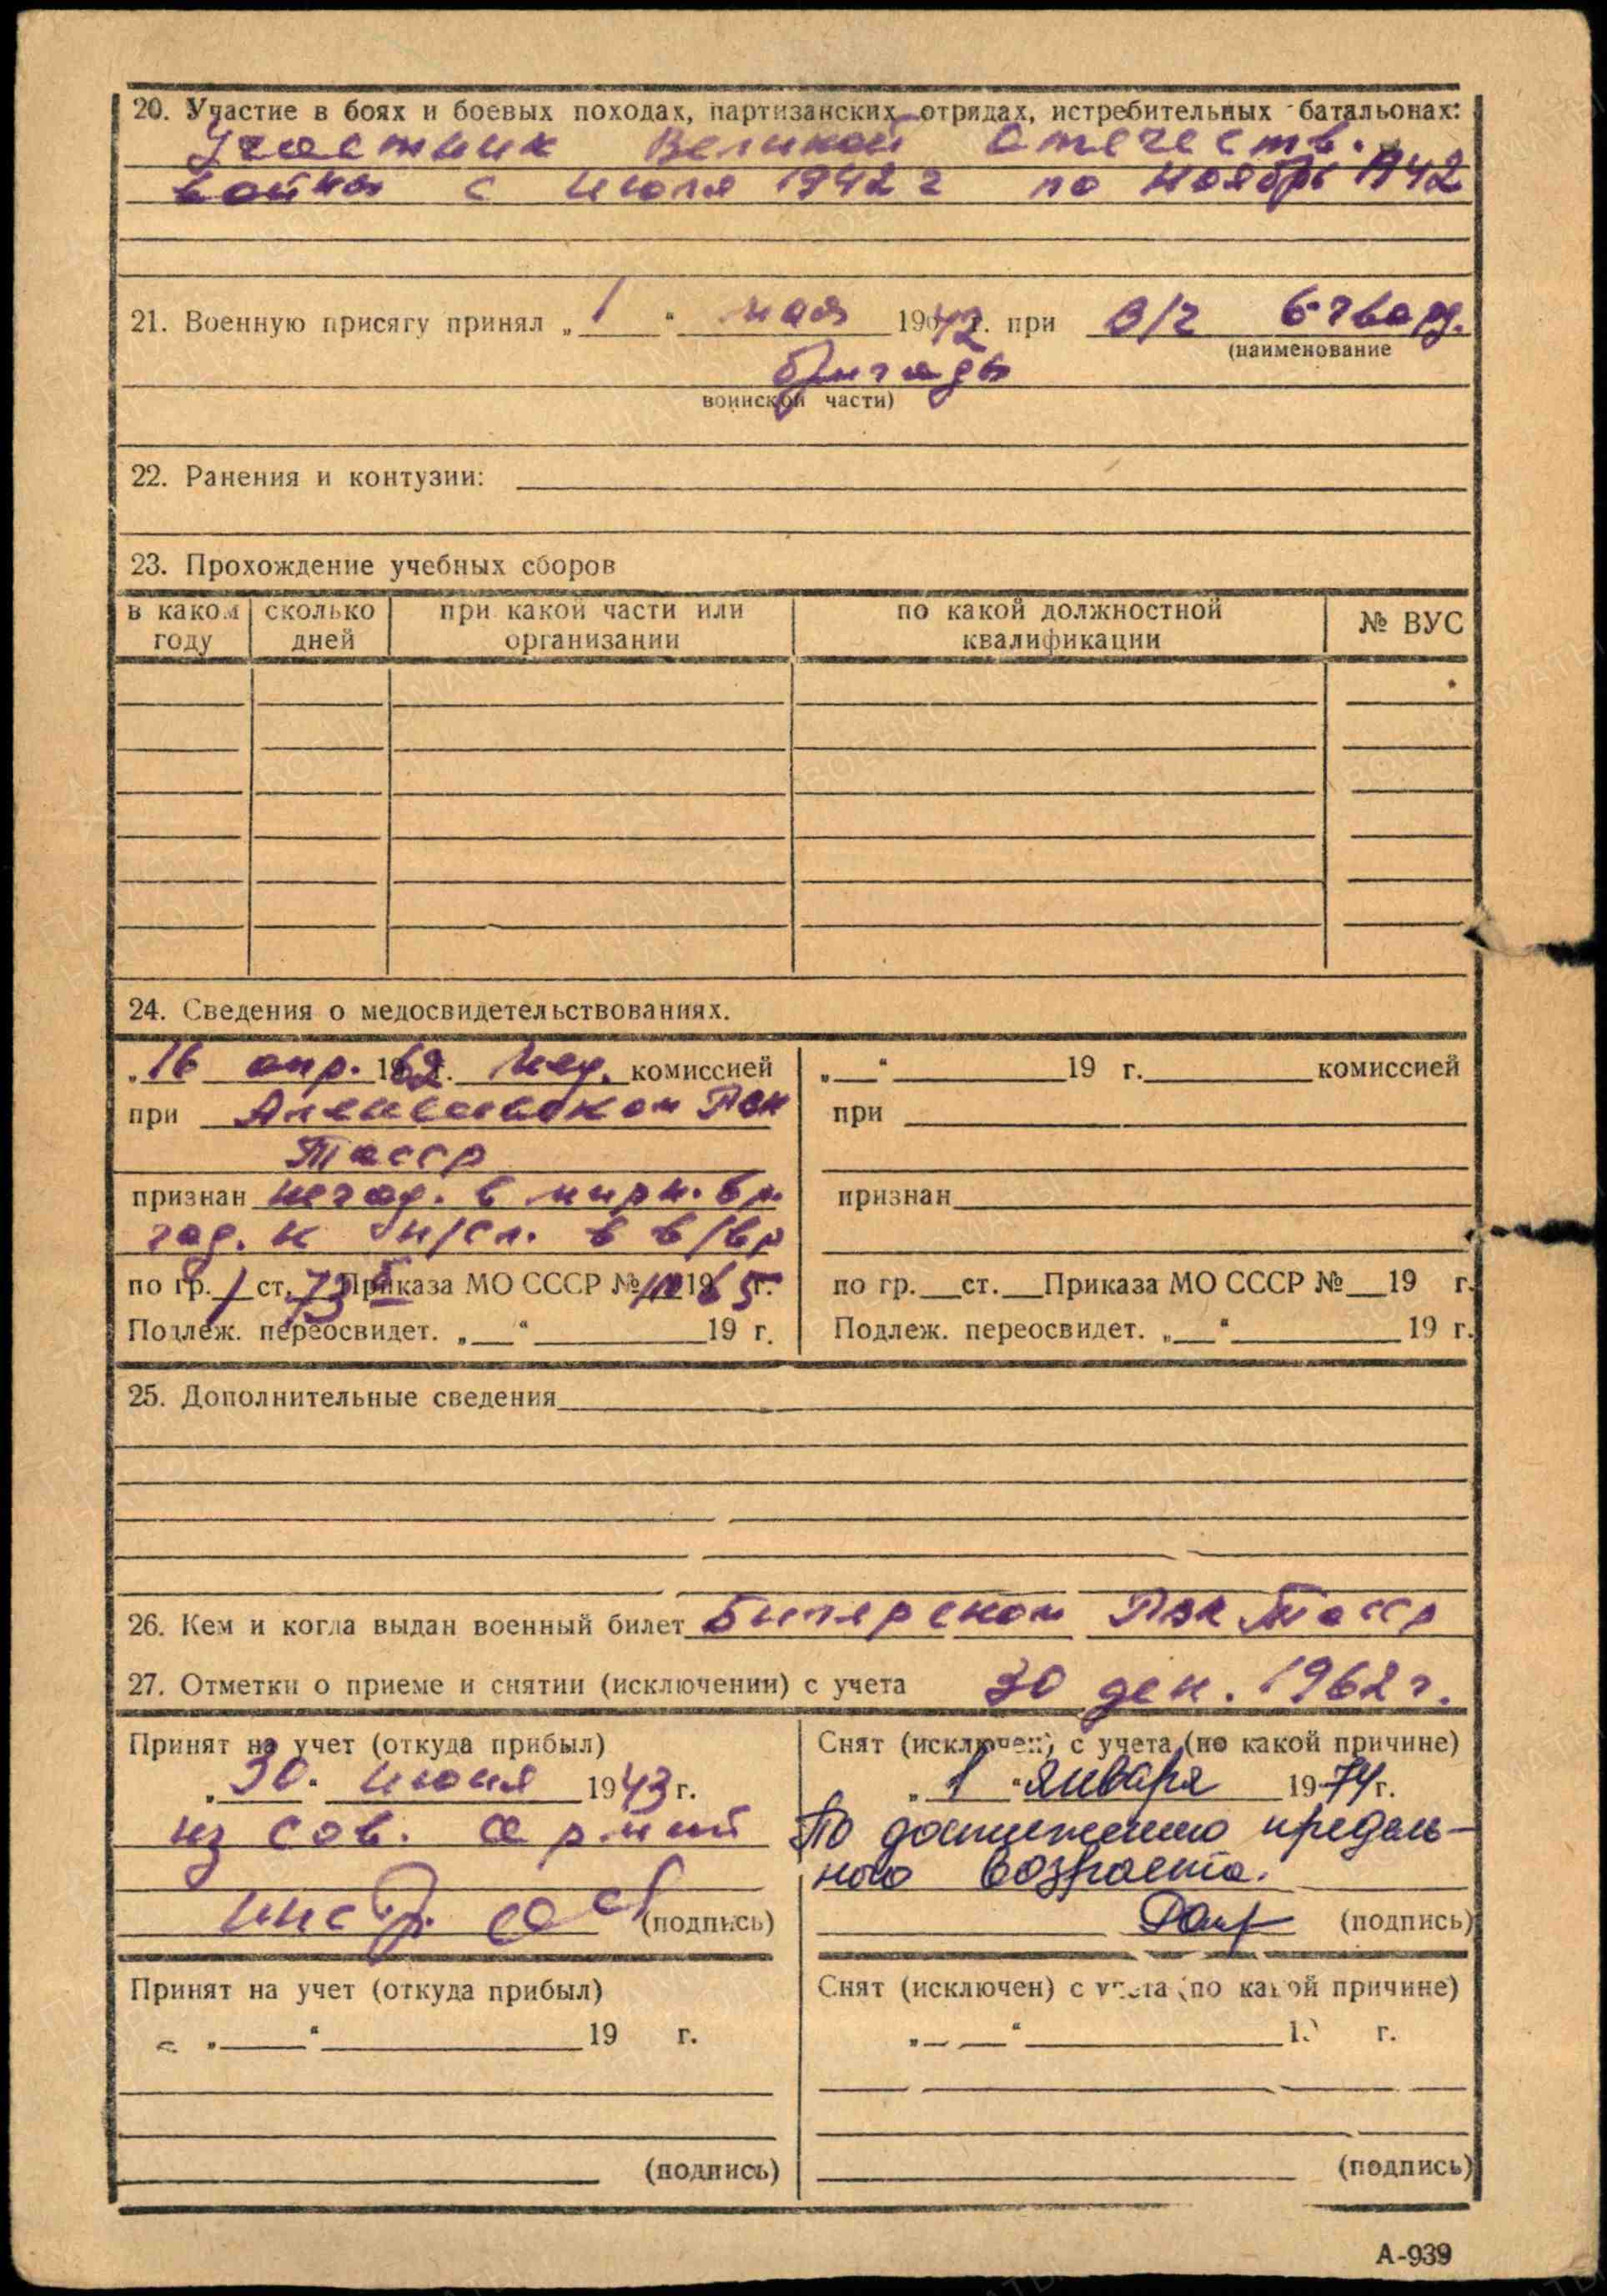 20. Участие в боях и боевых походах, партизанских отрядах, истребительных батальонах:
Участник Великой Отечеств.
войны с июля 1942 г по ноябрь 1942
21. Военную присягу принял „1“ мая 1942 г. при в/ч 6 гвард.
(наименование
бригады
воинской части)
22. Ранения и контузии:
23. Прохождение учебных сборов
в каком году | сколько дней | при какой части или организации | по какой должностной квалификации | № ВУС
24. Сведения о медосвидетельствованиях.
„16 апр. 1962 г. мед. комиссией
при РВК
Тасср
признан негод. в мирн. вр.
год. к н/сл. в в/вр
по гр. 1 ст. 73 Приказа МО СССР № 19 65 г.
Подлеж. переосвидет. „ “ 19 г.
„ “ 19 г. комиссией
при
признан
по гр. ст. Приказа МО СССР № 19 г.
Подлеж. переосвидет. „ “ 19 г.
25. Дополнительные сведения
26. Кем и когда выдан военный билет Билярском РВК Тасср
27. Отметки о приеме и снятии (исключении) с учета 30 дек. 1962 г.
Принят на учет (откуда прибыл)
„30. июня 1943 г.
из сов. армии
(подпись)
Снят (исключен) с учета (по какой причине)
„1“ января 1974 г.
По достижению предель-
ного возраста.
(подпись)
Принят на учет (откуда прибыл)
„ “ 19 г.
(подпись)
Снят (исключен) с учета (по какой причине)
„ “ 19 г.
(подпись)
А-939